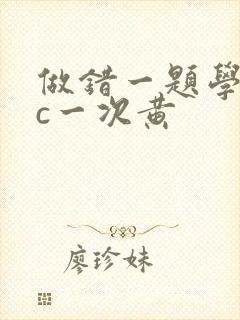 做錯一題學
c一次黃
廖珍妹